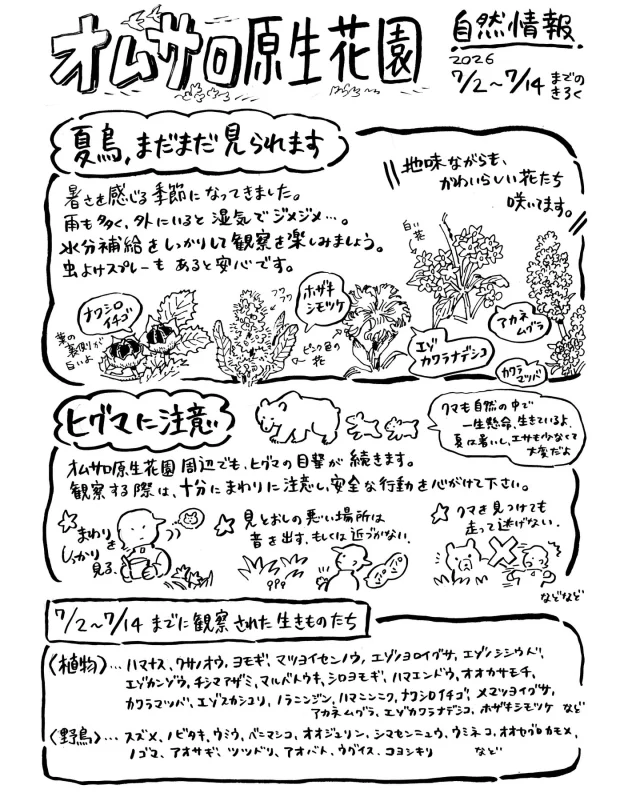 オムサロ原生花園
自然情報
2026
7/2～7/14 までの
きろく
夏鳥,まだまだ見られます
暑さを感じる季節になってきました。
雨も多く,外にいると湿気でジメジメ…。
水分補給をしっかりして観察を楽しみましょう。
虫よけスプレーもあると安心です。
地味ながらも、
かわいらしい花たち
咲いてます。
白い花
ナワシロ
イチゴ
葉の
裏側が
白いよ
フワフワ
ホザキ
シモツケ
ピンク色の
花
エゾ
カワラナデシコ
アカネ
ムグラ
カワラ
マツバ
ヒグマに注意
クマも自然の中で
一生懸命,生きているよ.
夏は暑いし,エサも少なくて
大変だよ
オムサロ原生花園周辺でも,ヒグマの目撃が続きます。
観察する際は,十分にまわりに注意し,安全な行動を心がけて下さい。
☆まわりを
しっかり
見る.
☆見とおしの悪い場所は
音を出す,もしくは近づかない.
☆クマを見つけても
走って逃げない.
などなど
7/2～7/14 までに観察された生きものたち
〈植物〉…ハマナス,クサノオウ,ヨモギ,マツヨイセンノウ,エゾノヨロイグサ,エゾノシシウド,
エゾカンゾウ,チシマアザミ,マルバトウキ,シロヨモギ,ハマエンドウ,オオカサモチ,
カワラマツバ,エゾスカシユリ,ノラニンジン,ハマニンニク,ナワシロイチゴ,メマツヨイグサ,
アカネムグラ,エゾカワラナデシコ,ホザキシモツケ など
〈野鳥〉…スズメ,ノビタキ,ウミウ,ベニマシコ,オオジュリン,シマセンニュウ,ウミネコ,オオセグロカモメ,
ノゴマ,アオサギ,ツツドリ,アオバト,ウグイス,コヨシキリ など